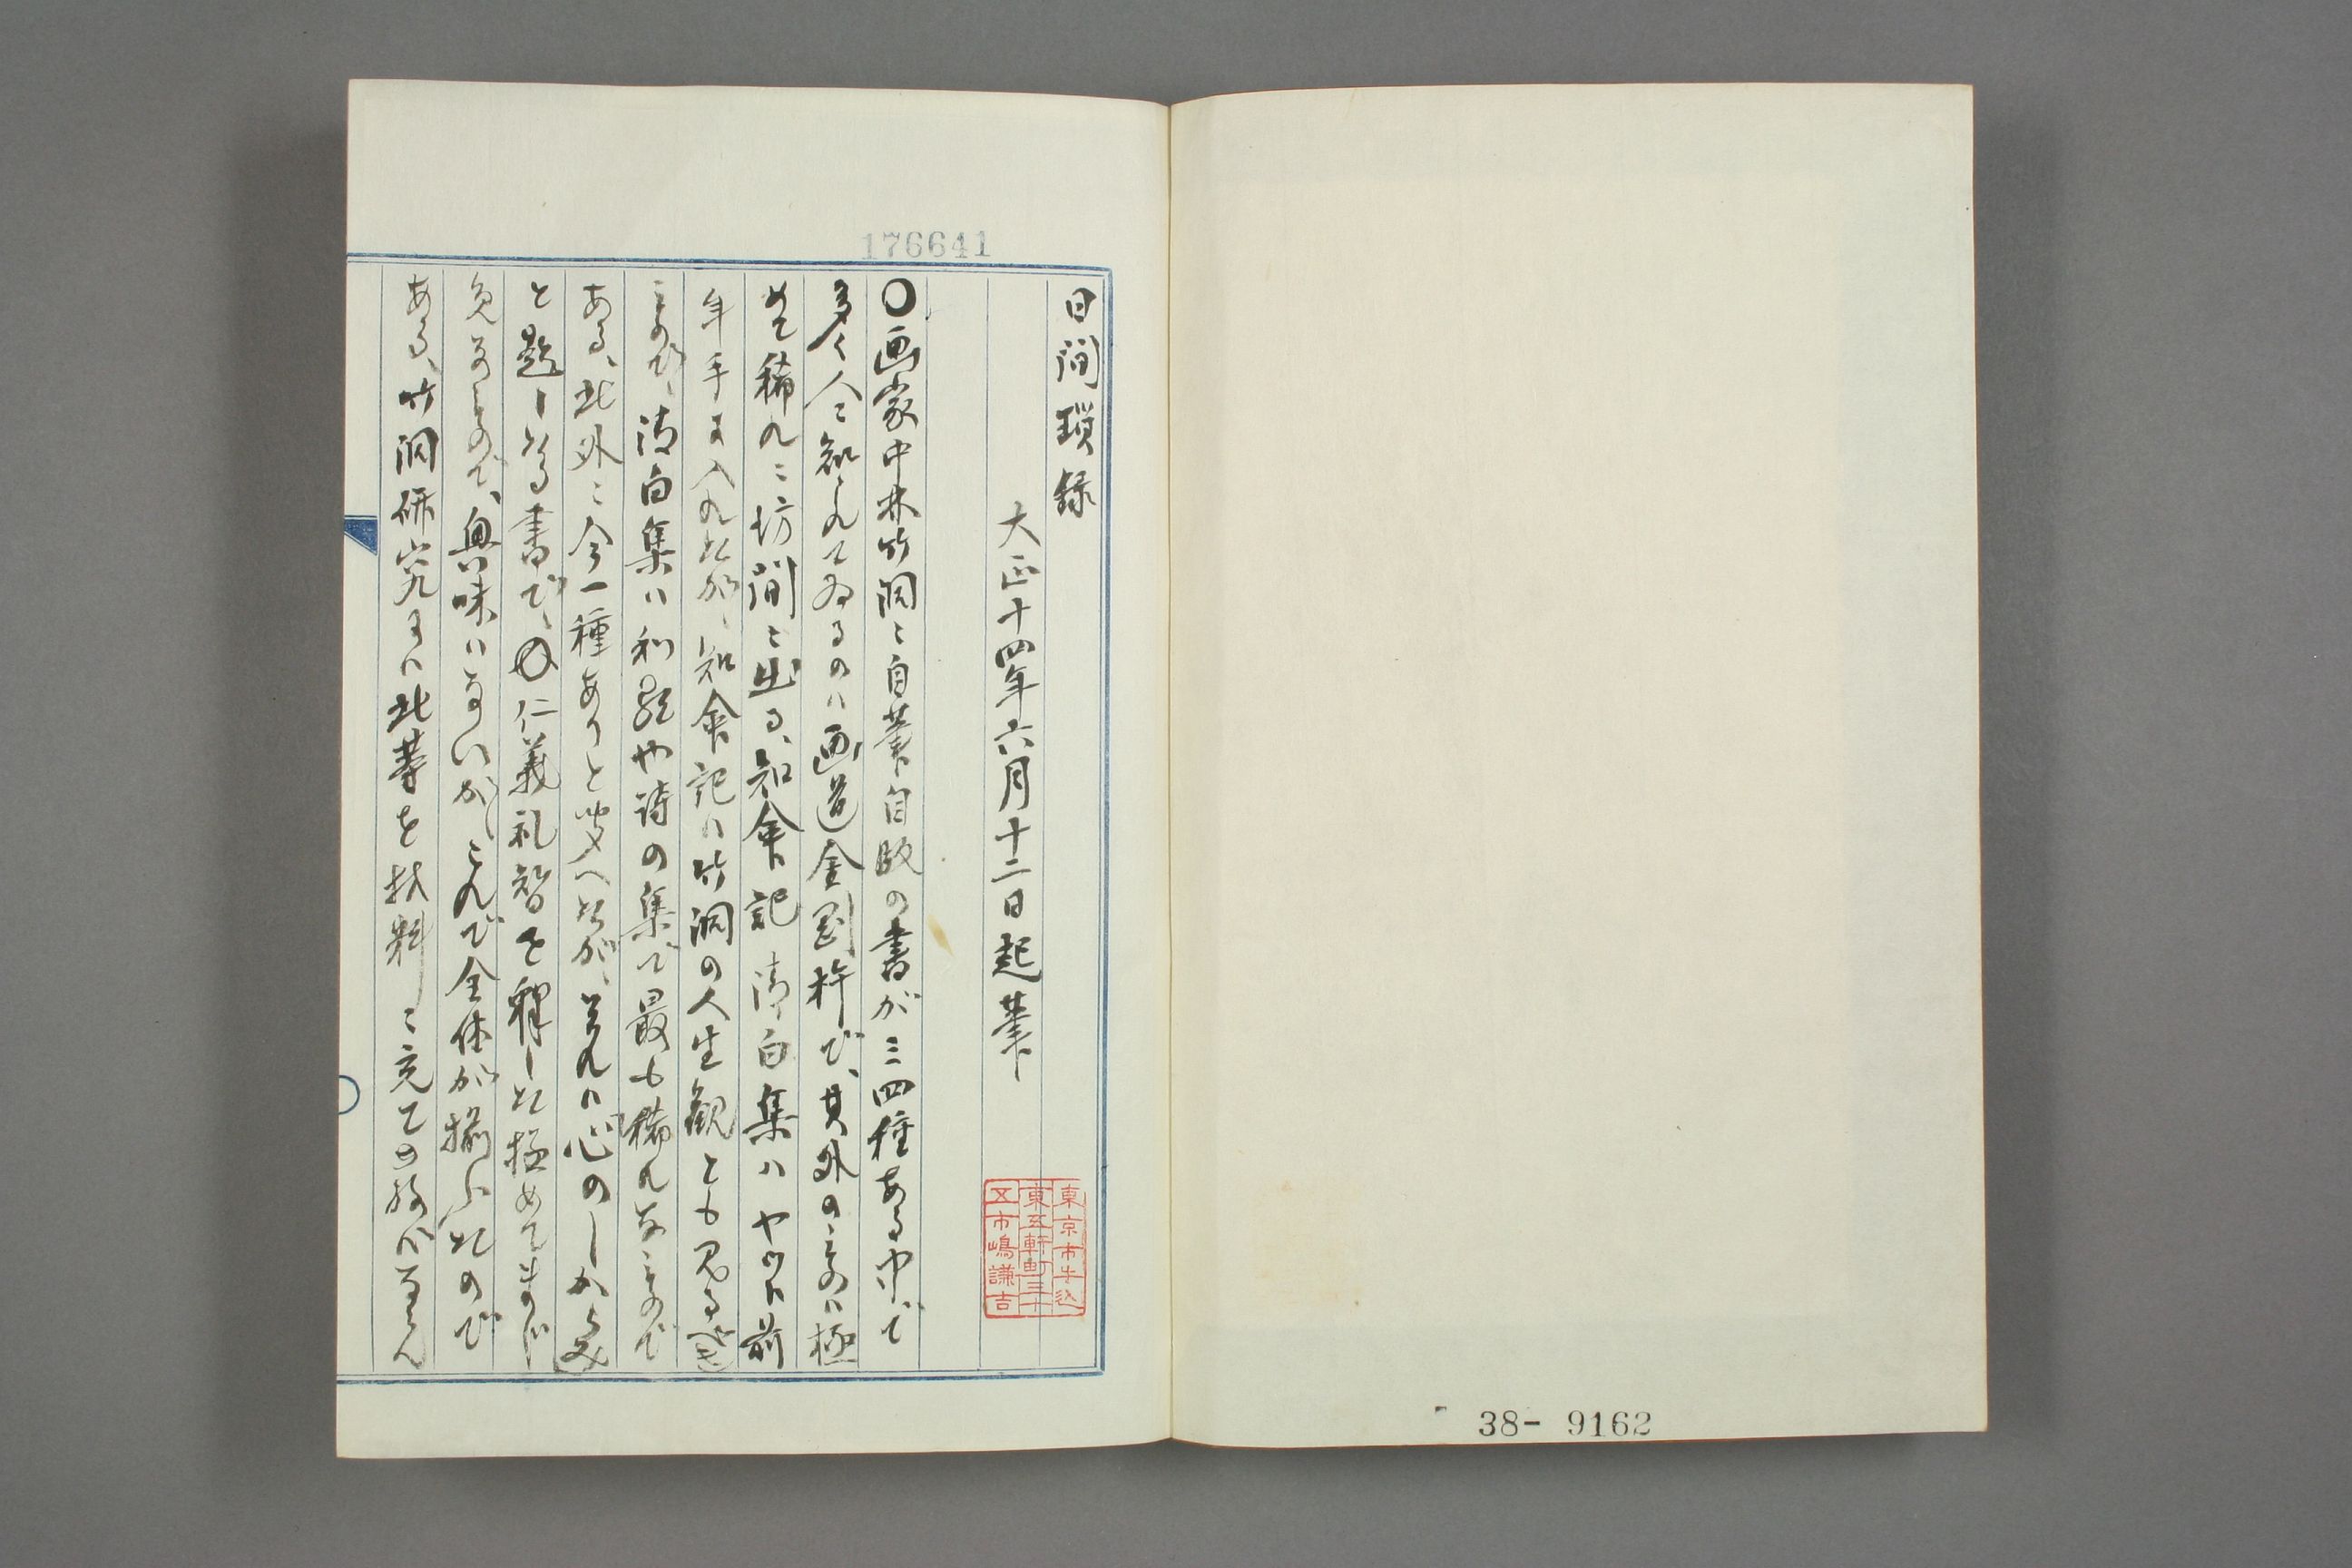 日間瑣録
大正十四年六月十二日起筆
東京市牛込
東五軒町三十
五市嶋謙吉
176641
〇画家中林竹洞ニ自著自版の書が三四種ある中で
多く人ニ知られてゐるのハ画道金剛杵で、其外のものハ極
めて稀れニ坊間ニ出る、知命記 清白集ハヤツト前
年手ニ入れたが、知命記ハ竹洞の人生観とも見る
もので、清白集ハ和歌や詩の集で最も稀れなもので
ある、此外ニ今一種ありと聞へたが、それハ心のしから
と題したる書で、仁義礼智を釈した極めてまじ
なもので、興味ハないが、これで全体が揃ふたので
ある、竹洞研究ニハ此等を材料ニ充ての
38- 9162